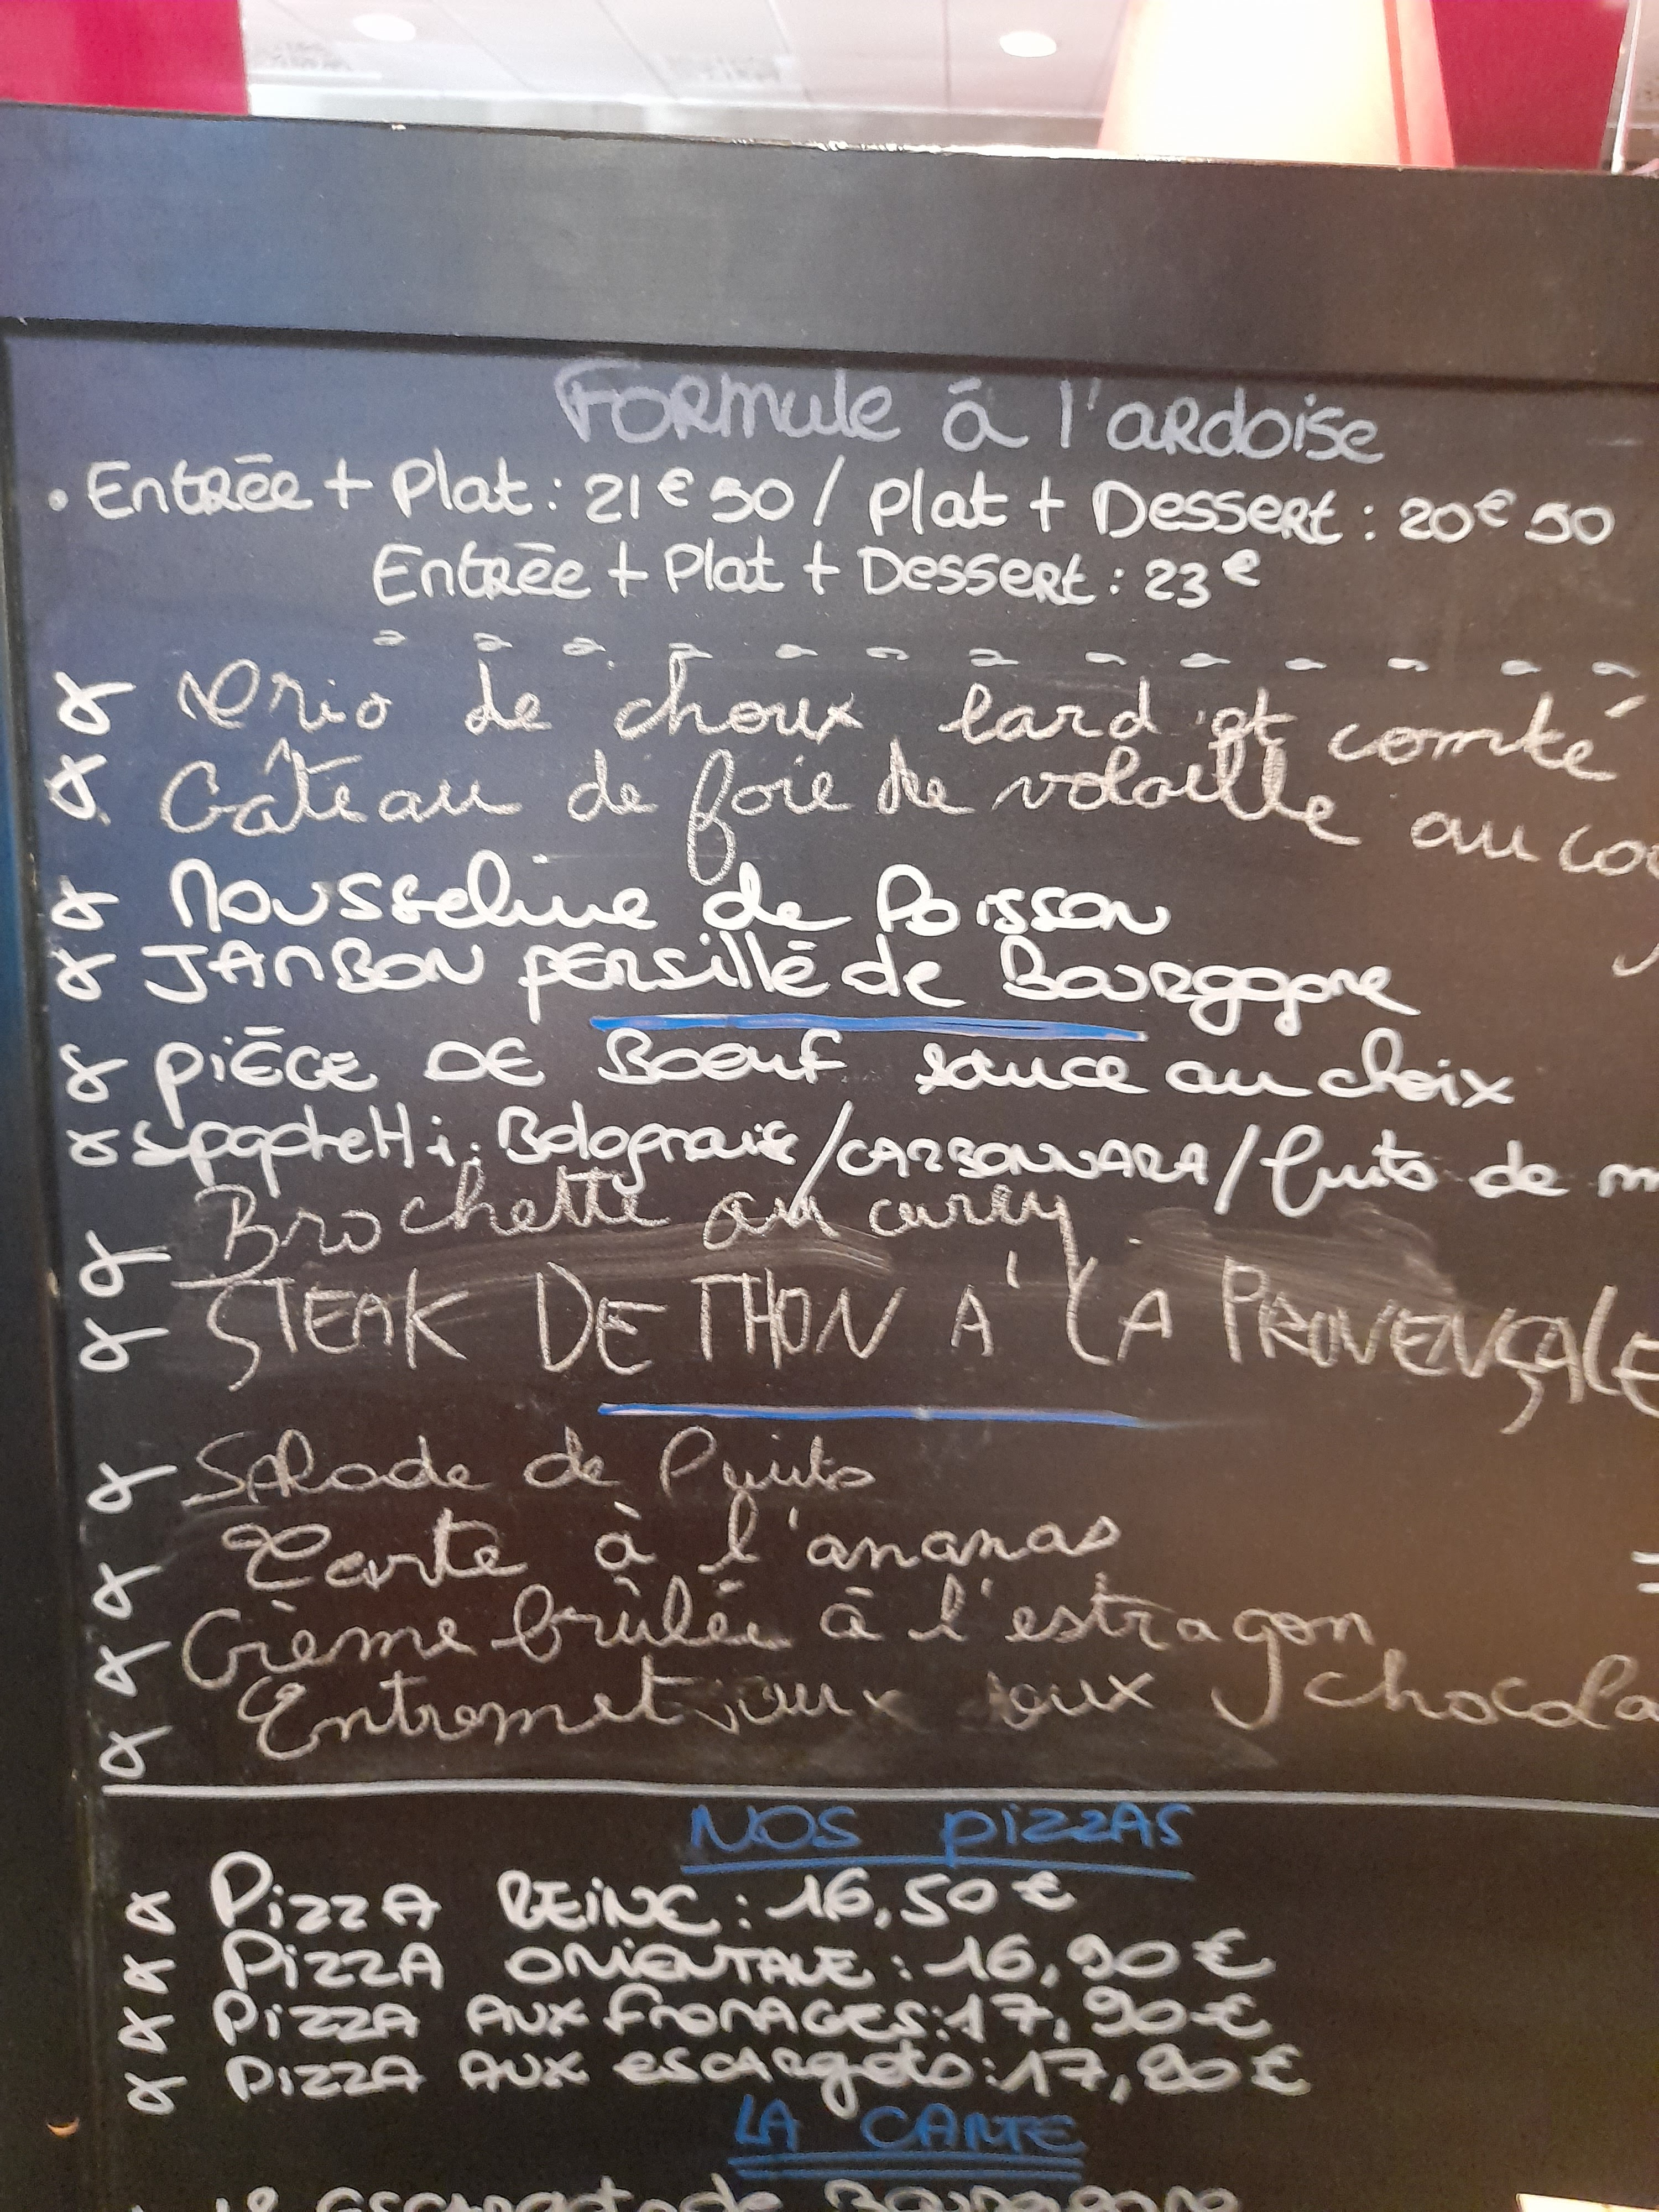 Formule à l'ardoise
• Entrée + Plat : 21€50 / Plat + Dessert : 20€50
Entrée + Plat + Dessert : 23€
Trio de choux lard et comté
Gâteau de foie de volaille au
Mousseline de Poisson
JAMBON PERSILLÉ de Bourgogne
PIÈCE DE Boeuf sauce au choix
Spaghetti : Bolognaise / CARBONNARA / fruits de
Brochette au curry
STEAK DE THON A' LA PROVENÇALE
Salade de fruits
Tarte à l'ananas
Crème brûlée à l'estragon
Entremet aux
NOS PIZZAS
PIZZA REINE : 16,50 €
PIZZA ORIENTALE : 16,90 €
PIZZA AUX FROMAGES : 17,90 €
PIZZA AUX escargots : 17,90 €
LA CARTE
escargots de Bourgogne